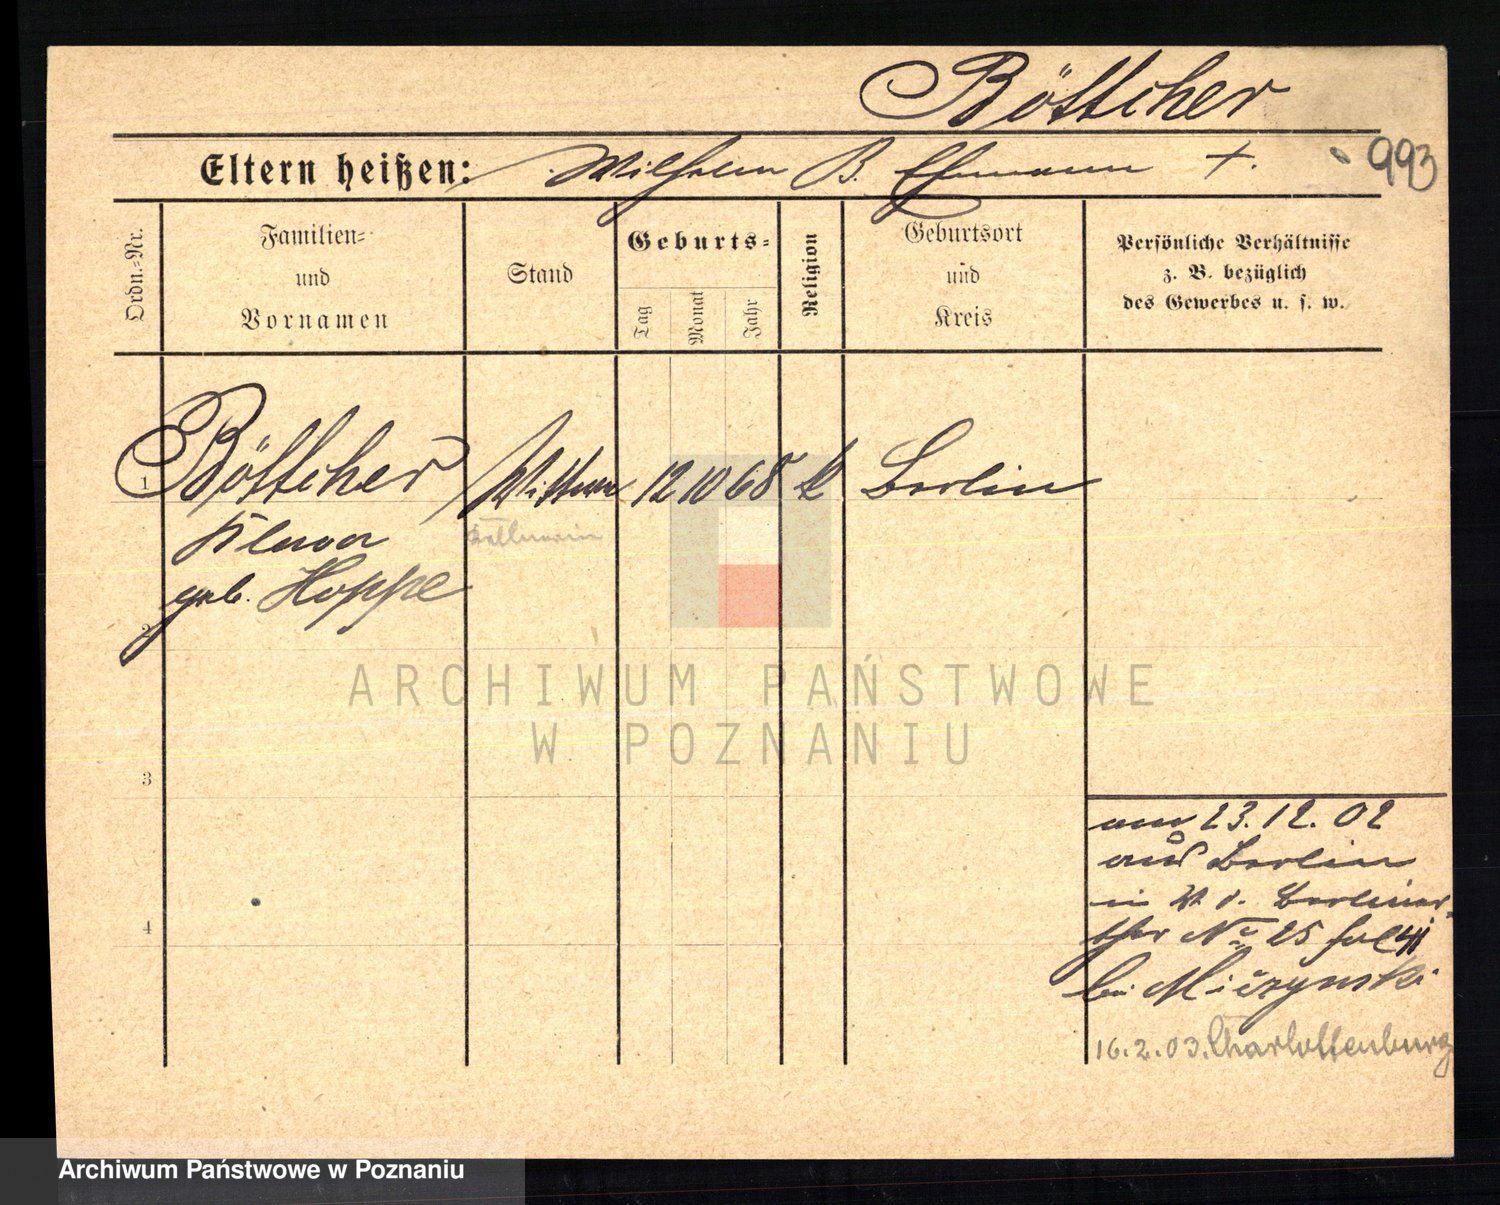 Böttcher
Eltern heißen: Wilhelm B. Ehemann +.
993
Ordn.-Nr.
Familien-
und
Vornamen
Stand
Geburts-
Tag
Monat
Jahr
Religion
Geburtsort
und
Kreis
Persönliche Verhältnisse
z. B. bezüglich
des Gewerbes u. s. w.
1
Böttcher
Wittwe
12 10 68
Berlin
Klara
geb. Hoppe
2
ARCHIWUM PAŃSTWOWE
W POZNANIU
3
am 23.12.02
aus Berlin
in Berliner
thor No 25
4
bei
16.2.03. Charlottenburg
Archiwum Państwowe w Poznaniu